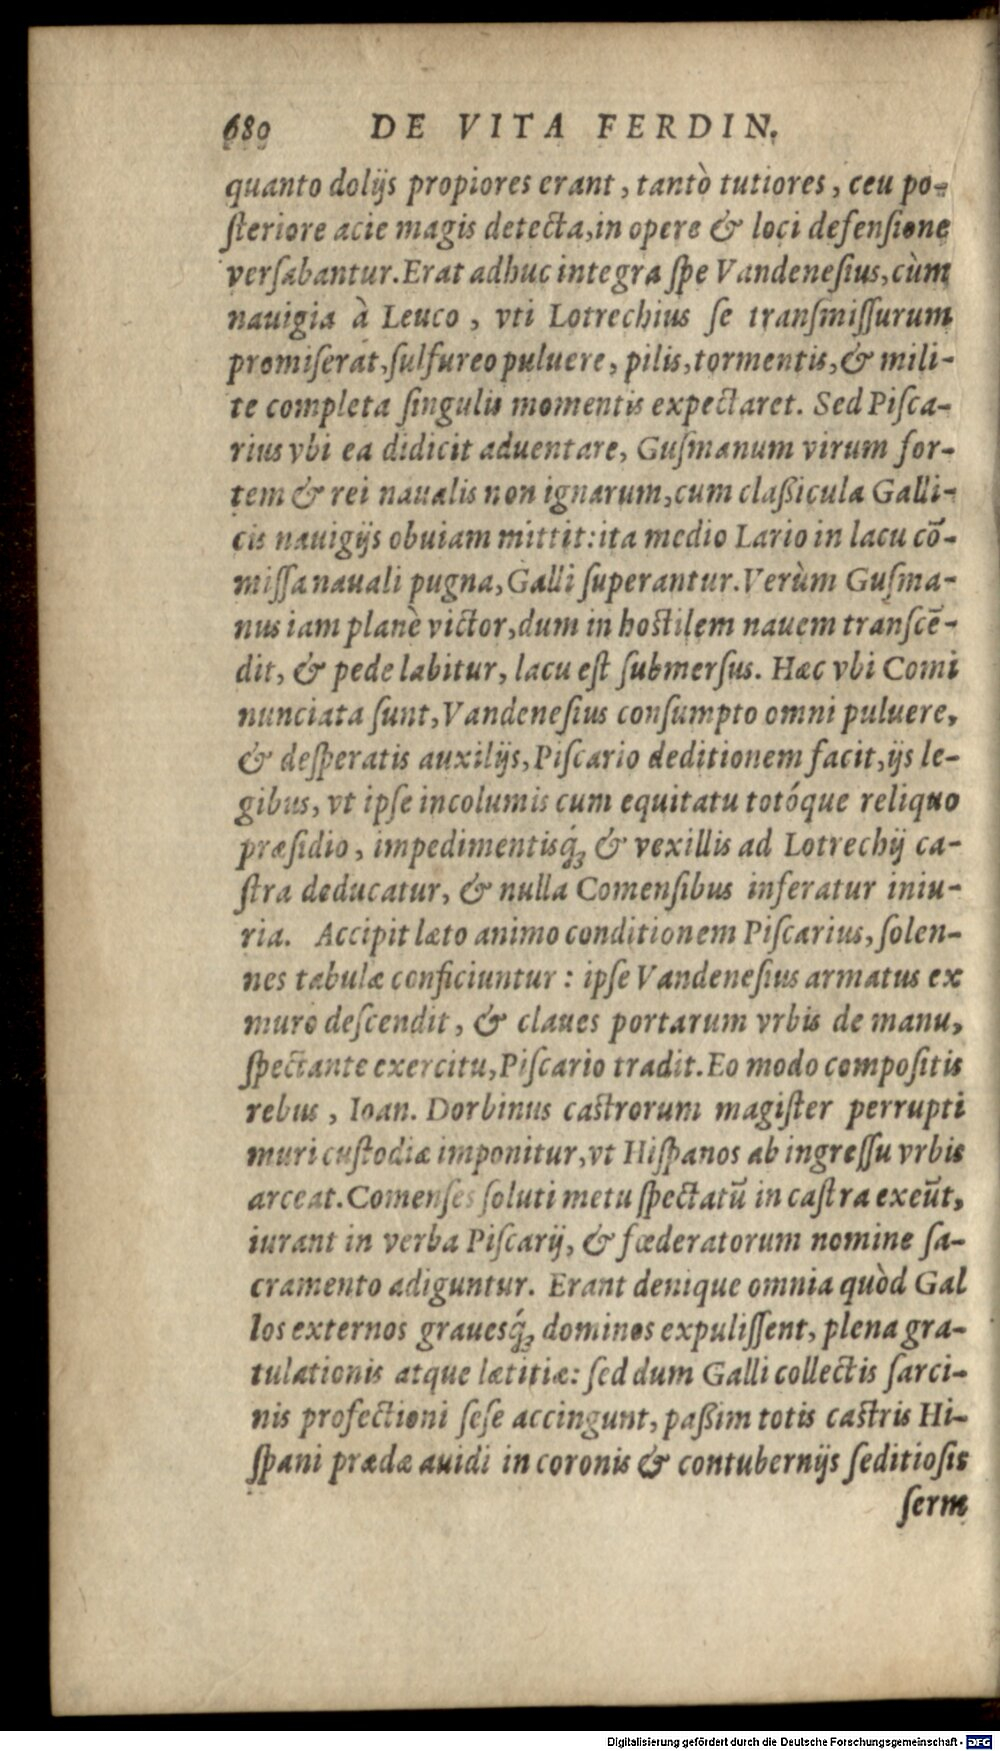 680 DE VITA FERDIN.
quanto dolijs propiores erant, tantò tutiores, ceu po-
ſteriore acie magis detecta, in opere & loci defenſione
verſabantur. Erat adhuc integra ſpe Vandeneſius, cùm
nauigia à Leuco, vti Lotrechius ſe tranſmiſſurum
promiſerat, ſulfureo puluere, pilis, tormentis, & mili-
te completa ſingulis momentis expectaret. Sed Piſca-
rius vbi ea didicit aduentare, Guſmanum virum for-
tem & rei naualis non ignarum, cum claßicula Galli-
cis nauigijs obuiam mittit: ita medio Lario in lacu cō-
miſſa nauali pugna, Galli ſuperantur. Verùm Guſma-
nus iam planè victor, dum in hoſtilem nauem tranſcē-
dit, & pede labitur, lacu eſt ſubmerſus. Hæc vbi Comi
nunciata ſunt, Vandeneſius conſumpto omni puluere,
& deſperatis auxilijs, Piſcario deditionem facit, ijs le-
gibus, vt ipſe incolumis cum equitatu totóque reliquo
præſidio, impedimentisq́; & vexillis ad Lotrechij ca-
ſtra deducatur, & nulla Comenſibus inferatur iniu-
ria. Accipit læto animo conditionem Piſcarius, ſolen-
nes tabulæ conficiuntur: ipſe Vandeneſius armatus ex
muro deſcendit, & claues portarum vrbis de manu,
ſpectante exercitu, Piſcario tradit. Eo modo compoſitis
rebus, Ioan. Dorbinus caſtrorum magiſter perrupti
muri cuſtodiæ imponitur, vt Hiſpanos ab ingreſſu vrbis
arceat. Comenſes ſoluti metu ſpectatū in caſtra exeūt,
iurant in verba Piſcarij, & fœderatorum nomine ſa-
cramento adiguntur. Erant denique omnia quòd Gal
los externos grauesq́; dominos expuliſſent, plena gra-
tulationis atque lætitiæ: ſed dum Galli collectis ſarci-
nis profectioni ſeſe accingunt, paßim totis caſtris Hi-
ſpani prædæ auidi in coronis & contubernijs ſeditioſis
ſerm
Digitalisierung gefördert durch die Deutsche Forschungsgemeinschaft - DFG